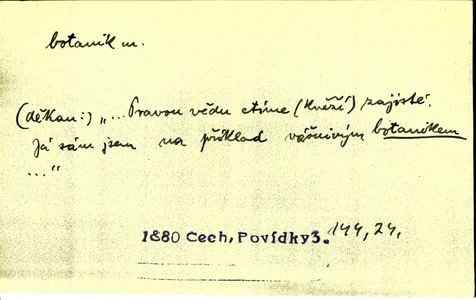 botanik m.
(děkan:) „...Pravou vědu ctíme (kněží) zajisté.
Já sám jsem na příklad vášnivým botanikem
..."
1880 Cech, Povídky3. 144, 24.